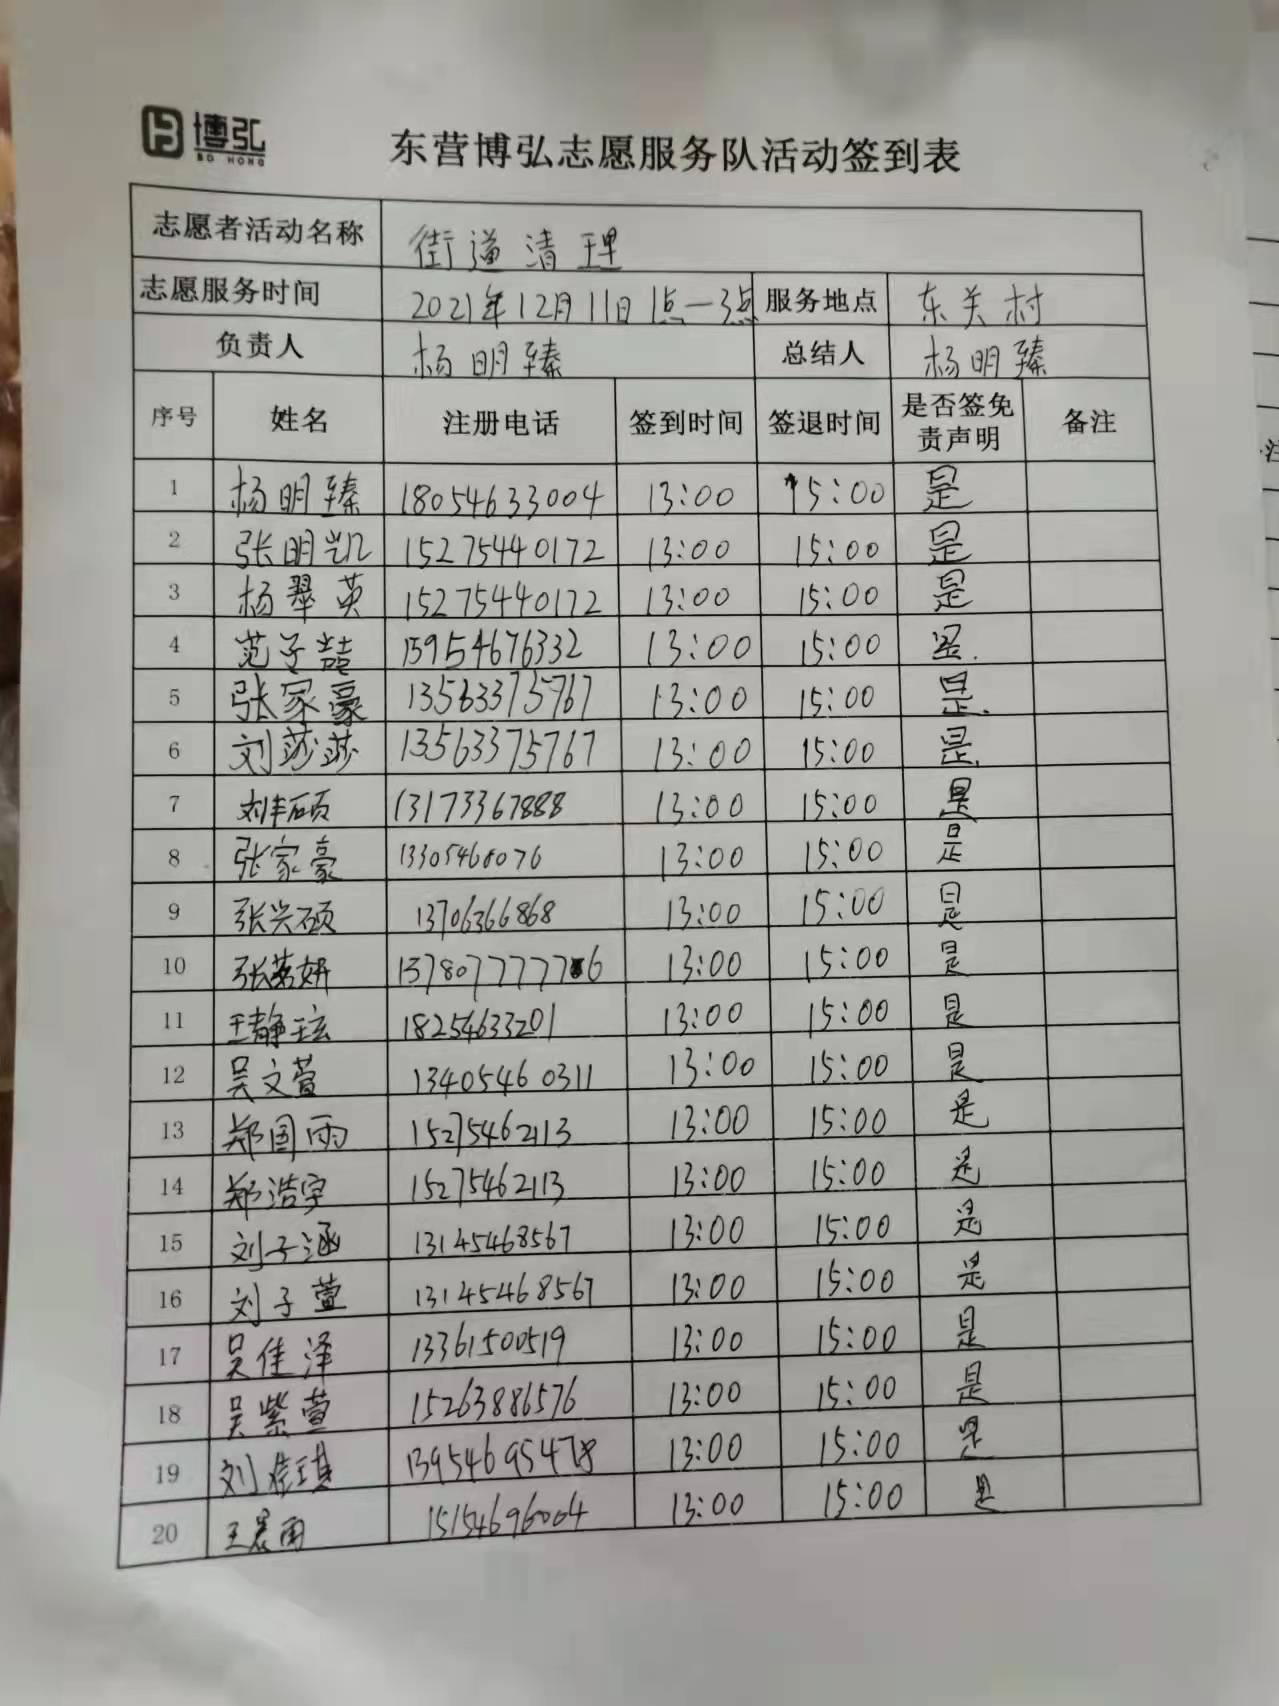 博弘
BO HONG
东营博弘志愿服务队活动签到表
志愿者活动名称 街道清理
志愿服务时间 2021年12月11日1点-3点 服务地点 东关村
负责人 杨明臻 总结人 杨明臻
序号 姓名 注册电话 签到时间 签退时间 是否签免责声明 备注
1 杨明臻 18054633004 13:00 15:00 是
2 张明凯 15275440172 13:00 15:00 是
3 杨翠英 15275440172 13:00 15:00 是
4 范子喆 15954676332 13:00 15:00 是.
5 张家豪 13563375767 13:00 15:00 是.
6 刘莎莎 13563375767 13:00 15:00 是.
7 刘丰硕 13173367888 13:00 15:00 是
8 张家豪 13305460076 13:00 15:00 是
9 张兴硕 13706366868 13:00 15:00 是
10 13:00 15:00 是
11 王静玹 18254633201 13:00 15:00 是
12 吴文萱 13405460311 13:00 15:00 是
13 郑国雨 15275462113 13:00 15:00 是
14 郑浩宇 15275462113 13:00 15:00 是
15 刘子涵 13145468567 13:00 15:00 是
16 刘子萱 13145468567 13:00 15:00 是
17 吴佳泽 13361500519 13:00 15:00 是
18 吴紫萱 15263886576 13:00 15:00 是
19 13954695478 13:00 15:00 是
20 王晨雨 15154696004 13:00 15:00 是